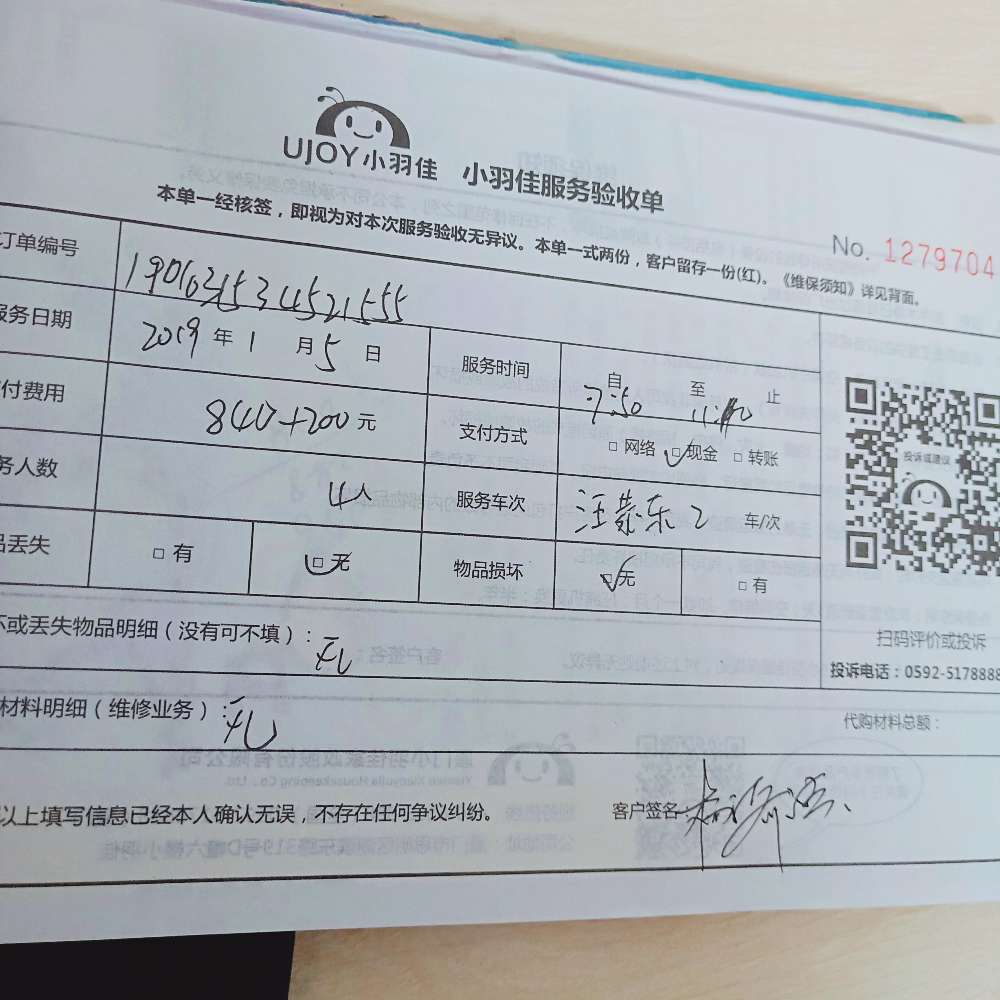 UJOY小羽佳 小羽佳服务验收单
本单一经核签，即视为对本次服务验收无异议。本单一式两份，客户留存一份(红)。《维保须知》详见背面。
No. 1279704
订单编号
服务日期 2019年1月5日 服务时间 自7:50至 止
付费用 840+200元 支付方式 □网络 □现金 □转账
务人数 4人 服务车次 2 车/次
品丢失 □有 □无 物品损坏 □无 □有
投诉或建议
扫码评价或投诉
投诉电话：0592-5178888
坏或丢失物品明细（没有可不填）：无
材料明细（维修业务）：无
代购材料总额：
以上填写信息已经本人确认无误，不存在任何争议纠纷。 客户签名